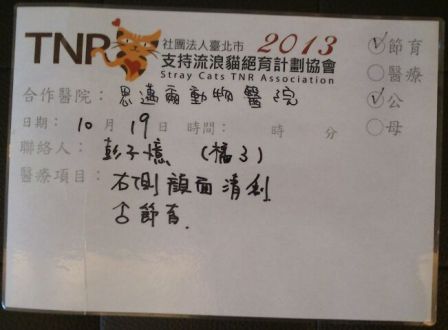 TNR 社團法人臺北市 2013
支持流浪貓絕育計劃協會
Stray Cats TNR Association
✓節育
醫療
✓公
母
合作醫院：思邁爾動物醫院
日期：10月19日 時間： 時 分
聯絡人：彭子憶 (橘3)
醫療項目：右側顏面清創
♂節育.